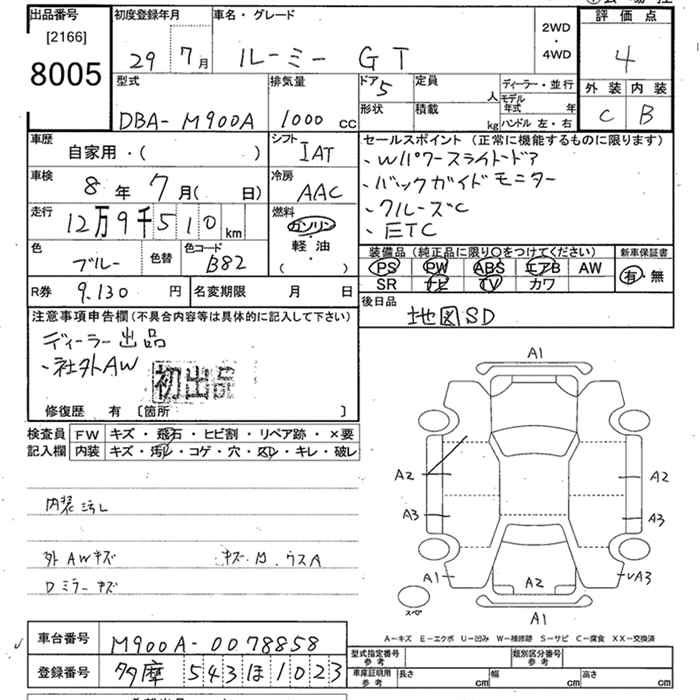 出品番号
[2166]
8005
初度登録年月
29年 7月
車名・グレード
ルーミー GT
2WD
・
4WD
評価点
4
外装 内装
C B
型式
DBA-M900A
排気量
1000 cc
ドア
5
形状
定員
人
積載
kg
ディーラー・並行
モデル年式 年
ハンドル 左・右
車歴
自家用・( )
シフト
IAT
車検
8年 7月( 日)
冷房
AAC
走行
12万9千510km
燃料
ガソリン
・
軽油
・
( )
色
ブルー
色替
色コード
B82
R券
9.130 円
名変期限 月 日
セールスポイント(正常に機能するものに限ります)
、Wパワースライドドア
、バックガイドモニター
、クルーズC
、ETC
装備品(純正品に限り○をつけてください)
PS PW ABS エアB AW
SR ナビ TV カワ
新車保証書
有・無
後日品
地図SD
注意事項申告欄(不具合内容等は具体的に記入して下さい)
ディーラー出品
、社外AW
初出品
修復歴 有 [箇所 ]
検査員
記入欄
FW キズ・飛石・ヒビ割・リペア跡・×要
内装 キズ・汚レ・コゲ・穴・凹ミ・キレ・破レ
内装汚レ
外AWキズ
Dミラーキズ
A1
A2
A2
A3
A3
A1
A2
A3
スペア
A1
A-キズ E-エクボ U-凹み W-補修跡 S-サビ C-腐食 XX-交換済
車台番号
M900A-0078858
登録番号
多摩 543 ほ 1023
型式指定番号
参考
類別区分番号
参考
車庫証明用
参考
長さ cm
幅 cm
高さ cm